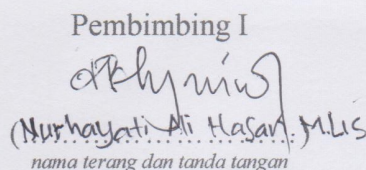 Pembimbing I
(Nurhayati Ali Hasan, M.LIS
nama terang dan tanda tangan